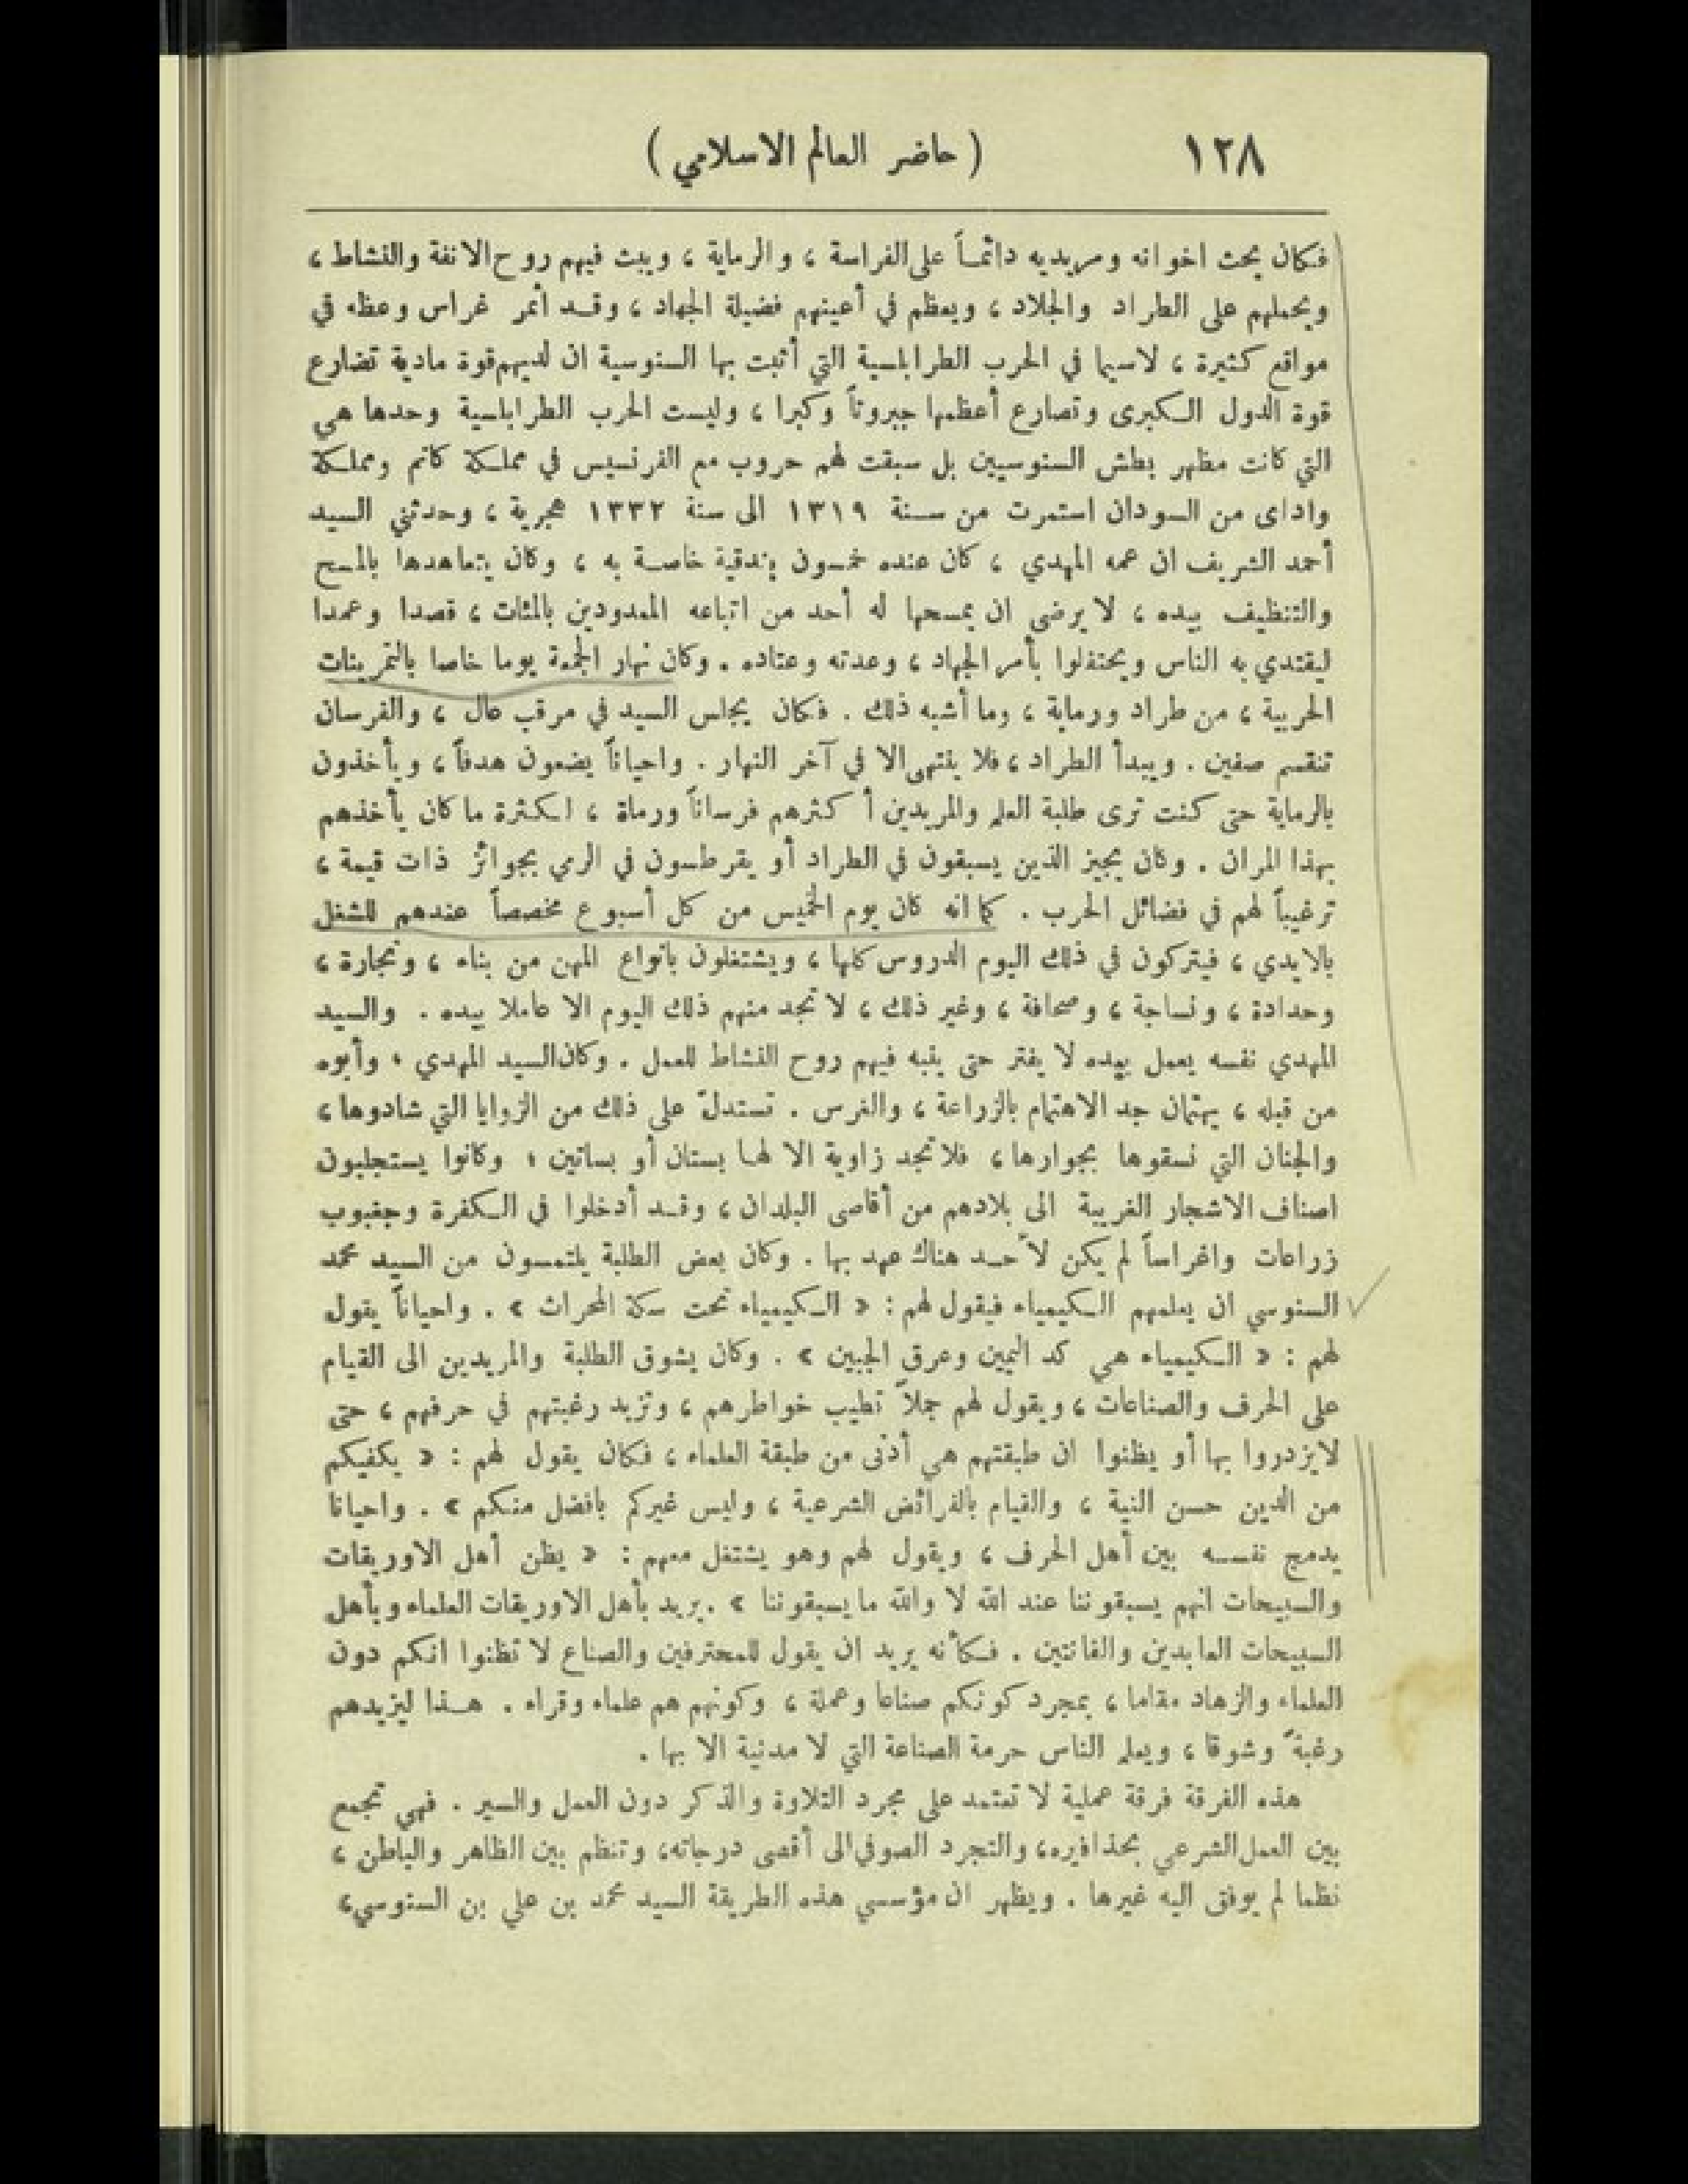 ١٢٨ ( حاضر العالم الاسلامي )
فكان يحث اخوانه ومريديه دائماً على الفراسة ، والرماية ، ويبث فيهم روح الانفة والنشاط ،
ويحملهم على الطراد والجلاد ، ويعظم في أعينهم فضيلة الجهاد ، وقد أثمر غراس وعظه في
مواقع كثيرة ، لاسيما في الحرب الطرابلسية التي أثبت بها السنوسية ان لديهم قوة مادية تضارع
قوة الدول الكبرى وتصارع أعظمها جبروتاً وكبرا ، وليست الحرب الطرابلسية وحدها هي
التي كانت مظهر بطش السنوسيين بل سبقت لهم حروب مع الفرنسيس في مملكة كانم ومملكة
واداى من السودان استمرت من سنة ١٣١٩ الى سنة ١٣٣٢ هجرية ، وحدثني السيد
أحمد الشريف ان عمه المهدي ، كان عنده خمسون بندقية خاصة به ، وكان يتعاهدها بالمسح
والتنظيف بيده ، لا يرضى ان يمسحها له أحد من اتباعه المعدودين بالمئات ، قصدا وعمدا
ليقتدي به الناس ويحتفلوا بأمر الجهاد ، وعدته وعتاده . وكان نهار الجمعة يوما خاصا بالتمرينات
الحربية ، من طراد ورماية ، وما أشبه ذلك . فكان يجلس السيد في مرقب عال ، والفرسان
تنقسم صفين . ويبدأ الطراد ، فلا ينتهى الا في آخر النهار . واحياناً يضعون هدفاً ، ويأخذون
بالرماية حتى كنت ترى طلبة العلم والمريدين أكثرهم فرساناً ورماة ، لكثرة ما كان يأخذهم
بهذا المران . وكان يجيز الذين يسبقون في الطراد أو يقرطسون في الرمي بجوائز ذات قيمة ،
ترغيباً لهم في فضائل الحرب . كما انه كان يوم الخميس من كل أسبوع مخصصاً عندهم للشغل
بالايدي ، فيتركون في ذلك اليوم الدروس كلها ، ويشتغلون بانواع المهن من بناء ، ونجارة ،
وحدادة ، ونساجة ، وصحافة ، وغير ذلك ، لا تجد منهم ذلك اليوم الا عاملا بيده . والسيد
المهدي نفسه يعمل بيده لا يفتر حتى ينبه فيهم روح النشاط للعمل . وكان السيد المهدي ، وأبوه
من قبله ، يهتمان جد الاهتمام بالزراعة ، والغرس . تستدلّ على ذلك من الزوايا التي شادوها ،
والجنان التي نسقوها بجوارها ، فلا تجد زاوية الا لها بستان أو بساتين ، وكانوا يستجلبون
اصناف الاشجار الغريبة الى بلادهم من أقاصى البلدان ، وقد أدخلوا في الكفرة وجغبوب
زراعات واغراساً لم يكن لأحد هناك عهد بها . وكان بعض الطلبة يلتمسون من السيد محمد
السنوسي ان يعلمهم الكيمياء فيقول لهم : « الكيمياء تحت سكة المحراث » . واحياناً يقول
لهم : « الكيمياء هي كد اليمين وعرق الجبين » . وكان يشوق الطلبة والمريدين الى القيام
على الحرف والصناعات ، ويقول لهم جملاً تطيب خواطرهم ، وتزيد رغبتهم في حرفهم ، حتى
لايزدروا بها أو يظنوا ان طبقتهم هي أدنى من طبقة العلماء ، فكان يقول لهم : « يكفيكم
من الدين حسن النية ، والقيام بالفرائض الشرعية ، وليس غيركم بافضل منكم » . واحيانا
يدمج نفسه بين أهل الحرف ، ويقول لهم وهو يشتغل معهم : « يظن أهل الاوريقات
والسبيحات انهم يسبقوننا عند الله لا والله ما يسبقوننا » . يريد بأهل الاوريقات العلماء وبأهل
السبيحات العابدين والقانتين . فكأنه يريد ان يقول للمحترفين والصناع لا تظنوا انكم دون
العلماء والزهاد مقاما ، بمجرد كونكم صناعا وعملة ، وكونهم هم علماء وقراء . هذا ليزيدهم
رغبةً وشوقا ، ويعلم الناس حرمة الصناعة التي لا مدنية الا بها .
هذه الفرقة فرقة عملية لا تعتمد على مجرد التلاوة والذكر دون العمل والسير . فهي تجمع
بين العمل الشرعي بحذافيره ، والتجرد الصوفي الى أقصى درجاته ، وتنظم بين الظاهر والباطن ،
نظما لم يوفق اليه غيرها . ويظهر ان مؤسسي هذه الطريقة السيد محمد بن علي بن السنوسي ،